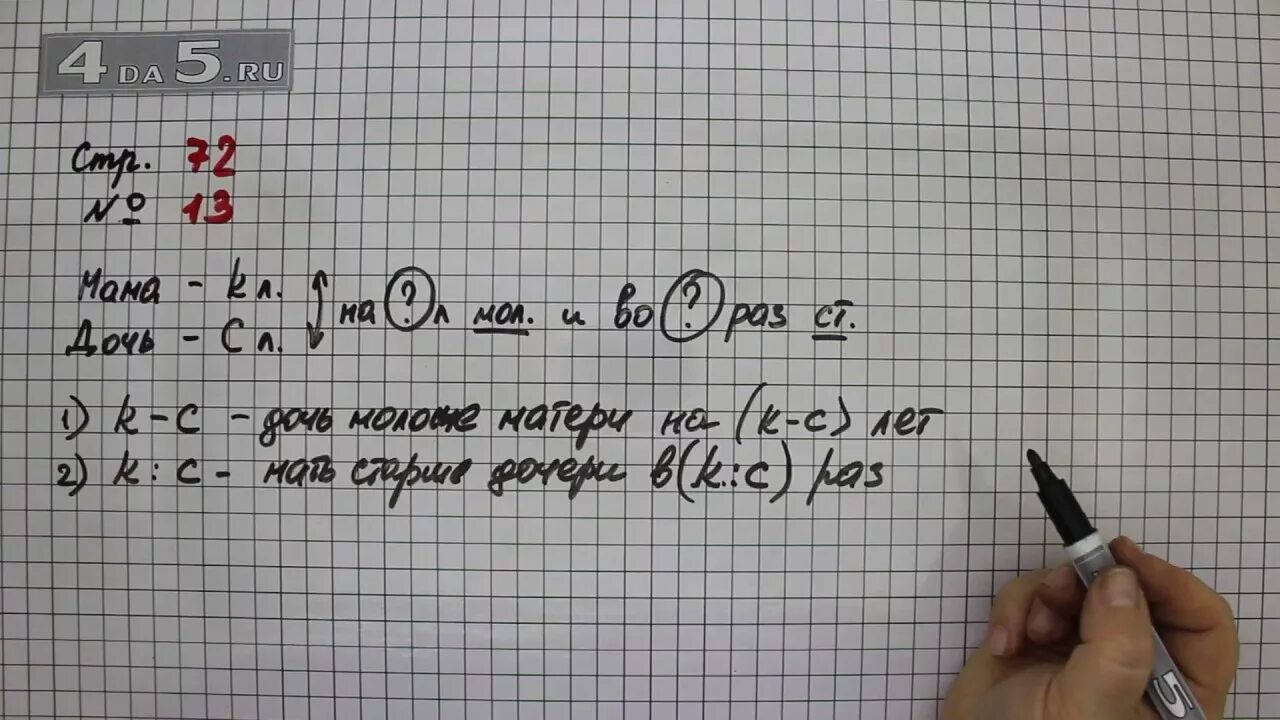 4DA5.RU
Стр. 72
№ 13
Мама - k л.
Дочь - C л.
на ? л мол. и во ? раз ст.
1) k - c - дочь моложе матери на (k-c) лет
2) k : c - мать старше дочери в (k:c) раз
5